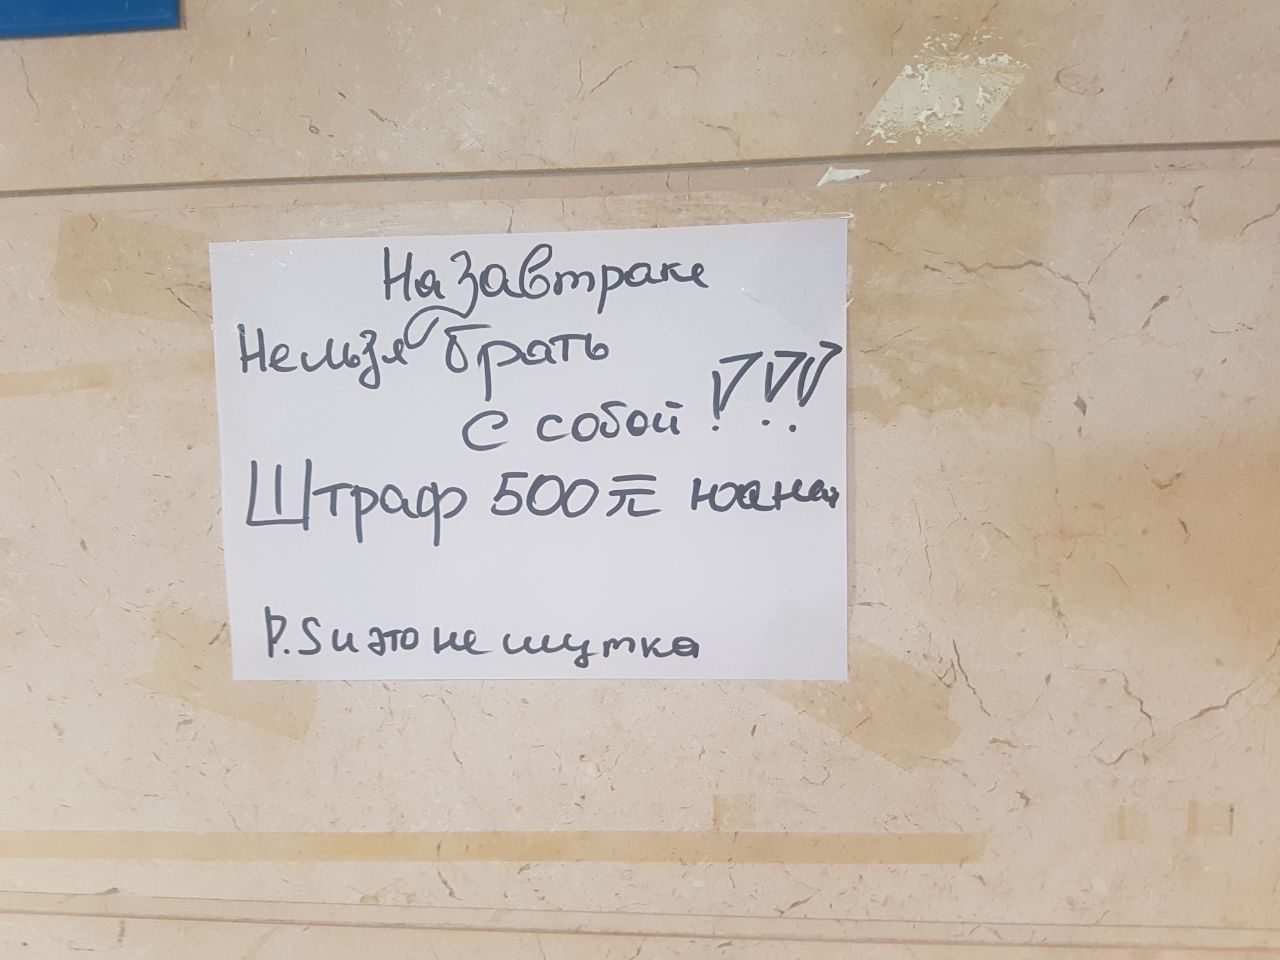 На завтраке
Нельзя брать
с собой !!!
Штраф 500元 юаней
P.S и это не шутка